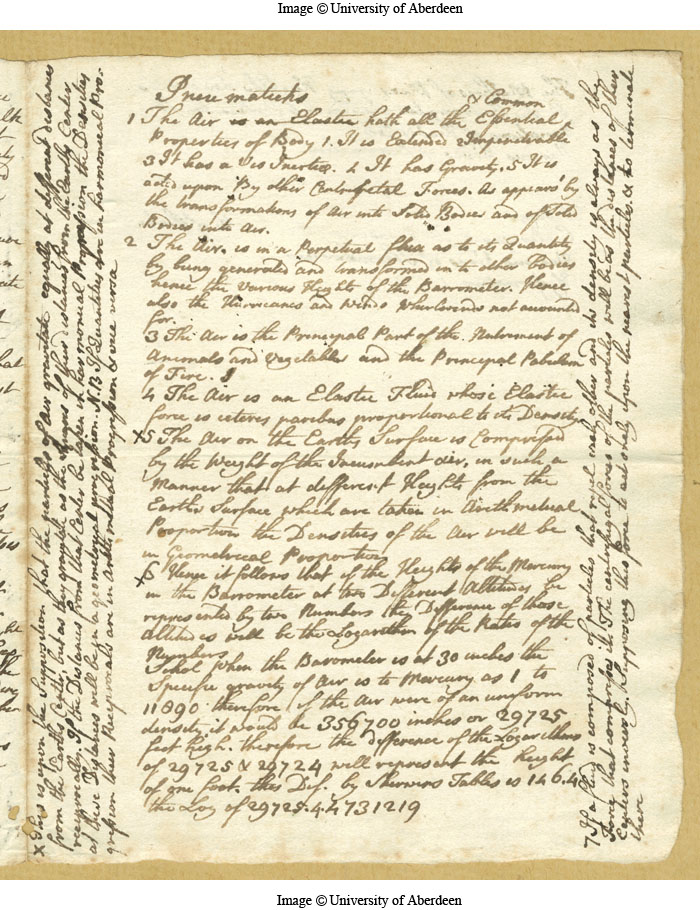 Image © University of Aberdeen
Pneumaticks
& Common
1 The Air is an Elastic hath all the Essential
Properties of Body 1. It is Extended 2 Impenetrable
3 It has a vis Inertiæ. 4 It has Gravity. 5 It is
acted upon By other Centripetal Forces. As appears by
the transformations of Air into Solid Bodies and of Solid
Bodies into Air.
2 The Air is in a Perpetual flux as to its Quantity
by being generated and transformed into other bodies
hence the various Heights of the Barrometer. Hence
also the Hurricanes and Winds Whirlwinds not accounted
for.
3 The Air is the Principal Part of the Nutriment of
Animals and Vegetables and the Principal Pabulum
of Fire.
4 The Air is an Elastic Fluid whose Elastic
force is ceteris paribus proportional to its Density
X5 The Air on the Earths Surface is Comprissed
by the Weight of the Incumbent air, in such a
Manner that at different Heights from the
Earths Surface which are taken in Arithmetical
Proportion the Densities of the Air will be
in Geometrical Proportion
X6 Hence it follows that if the Heights of the Mercury
in the Barrometer at two Different Altitudes be
represented by two Numbers the Difference of those
Altitudes will be the Logarithm of the Ratio of the
Numbers
Schol When the Barometer is at 30 inches the
Specific gravity of Air is to Mercury as 1 to
11890 therefore if the Air were of an uniform
density it would be 356700 inches or 29725
feet high. therefore the difference of the Logarithms
of 29725 & 29724 will represent the height
of one foot. this Dif. by Sherwins Tables is 146.4
the Log of 29725. 4.4731219
X This is upon the Supposition that the particles of air gravitate equally at different distances
from the Earths Center, but as they gravitate as the Squares of their distances from the Earths Center
reciprocally, If the Distances from that Center be taken in harmonical Progression the Densities
at these Distances will be in a geometrical progression. N.B. If Quantities are in harmonical Pro-
gression their Reciprocals are in Arithmetical Progression & vice versa
7 If a fluid is composed of particles that each other and its density is always as the
Force that comprises it. The centrifugal forces of the particles will be as the distances of their
Centers inversely. Supposing this force to act only upon the nearest particles & to terminate
there
Image © University of Aberdeen